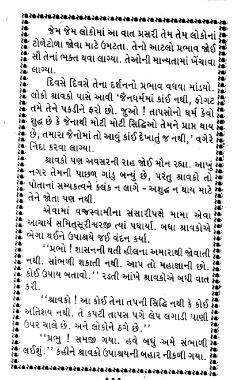 જેમ જેમ લોકોમાં આ વાત પ્રસરી તેમ તેમ લોકોનાં
ટોળેટોળા જોવા માટે ઉમટતા. તેનો આટલો પ્રભાવ જોઈ
સૌ તેનાં ભક્ત થવા લાગ્યા. તેઓની માન્યતામાં ખેંચાવા
લાગ્યા.
દિવસે દિવસે તેના દર્શનનો પ્રભાવ વધવા માંડયો.
લોકો શ્રાવકો પાસે આવી ‘જૈનધર્મમાં કાંઈ નથી, ફોગટ
તમે તેને પકડીને ફરો છો. જુઓ ! તાપસોનો ધર્મ કેવો
શુદ્ધ છે કે જેનાથી મોટી મોટી સિદ્ધિઓ તેમને પ્રાપ્ત થાય
છે, તમારા જૈનોમાં તો આવું કાંઈ દેખાતું જ નથી,’ વગેરે
નિંદા કરવા લાગ્યા.
શ્રાવકો પણ અવસરની રાહ જોઈ મૌન રહ્યા. આખું
નગર તેમની પાછળ ગાંડુ બન્યું છે, પરંતુ શ્રાવકો તો
પોતાનાં સમ્યકત્વને કલંક ન લાગે - અશુદ્ધ ન થાય માટે
તેને જોતા પણ નથી.
એવામાં વજ્રસ્વામીના સંસારીપક્ષે મામા એવા
આચાર્ય સમિતસૂરીશ્વરજી ત્યાં પધાર્યા. બધા શ્રાવકોએ
ભેગા થઈને ઉપાશ્રયે જઈ વંદન કર્યા.
‘‘પ્રભો ! શાસનની થતી હીલના અમારાથી જોવાતી
નથી. સાંભળી શકાતી નથી. આપ તો મહાજ્ઞાની છો.
કોઈ ઉપાય બતાવો.’’ રડતી આંખે શ્રાવકોએ બધી વાત
કરી.
‘‘શ્રાવકો ! આ કોઈ તેના તપની સિદ્ધિ નથી કે કોઈ
અતિશય નથી. તે કપટી તાપસ પગે લેપ લગાડી પાણી
ઉપર ચાલે છે. અને લોકોને ઠગે છે.’’
‘‘પ્રભુ ! સમજી ગયા. હવે બધું અમે સંભાળી
લઈશું.’’ કહીને શ્રાવકો ઉપાશ્રયની બહાર નીકળી ગયા.